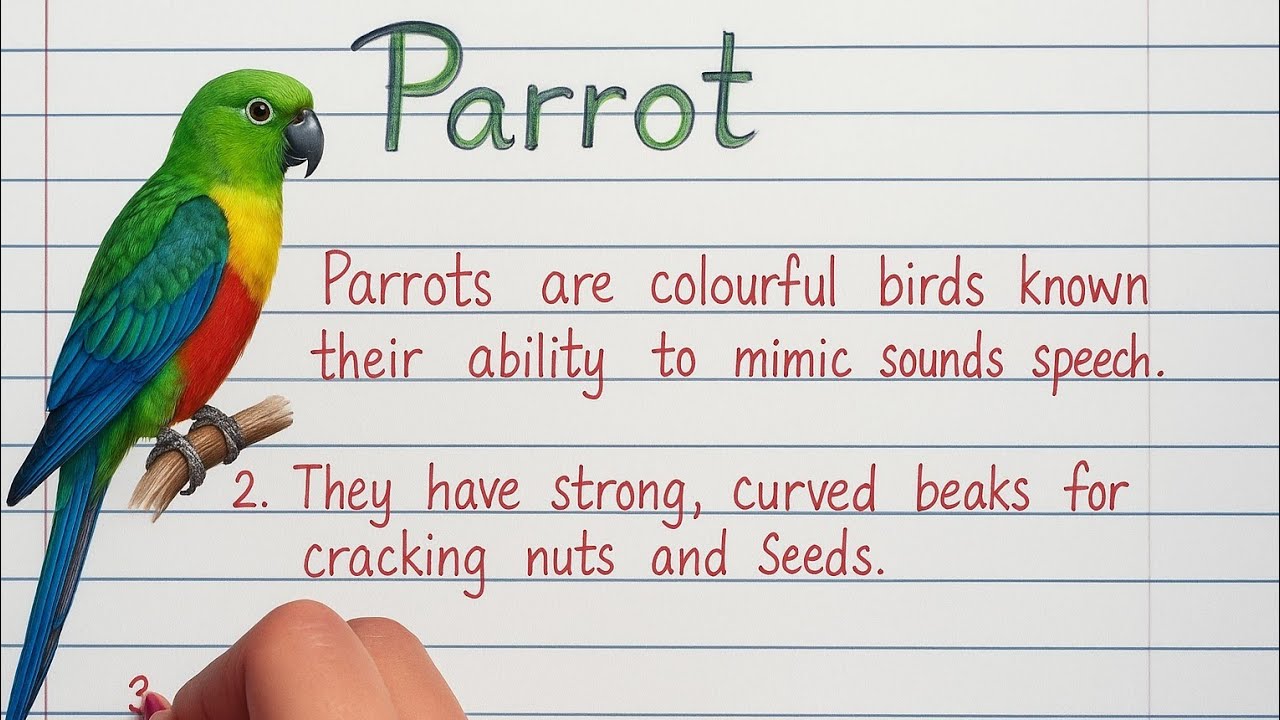 Parrot
Parrots are colourful birds known
their ability to mimic sounds speech.
2. They have strong, curved beaks for
cracking nuts and Seeds.
3